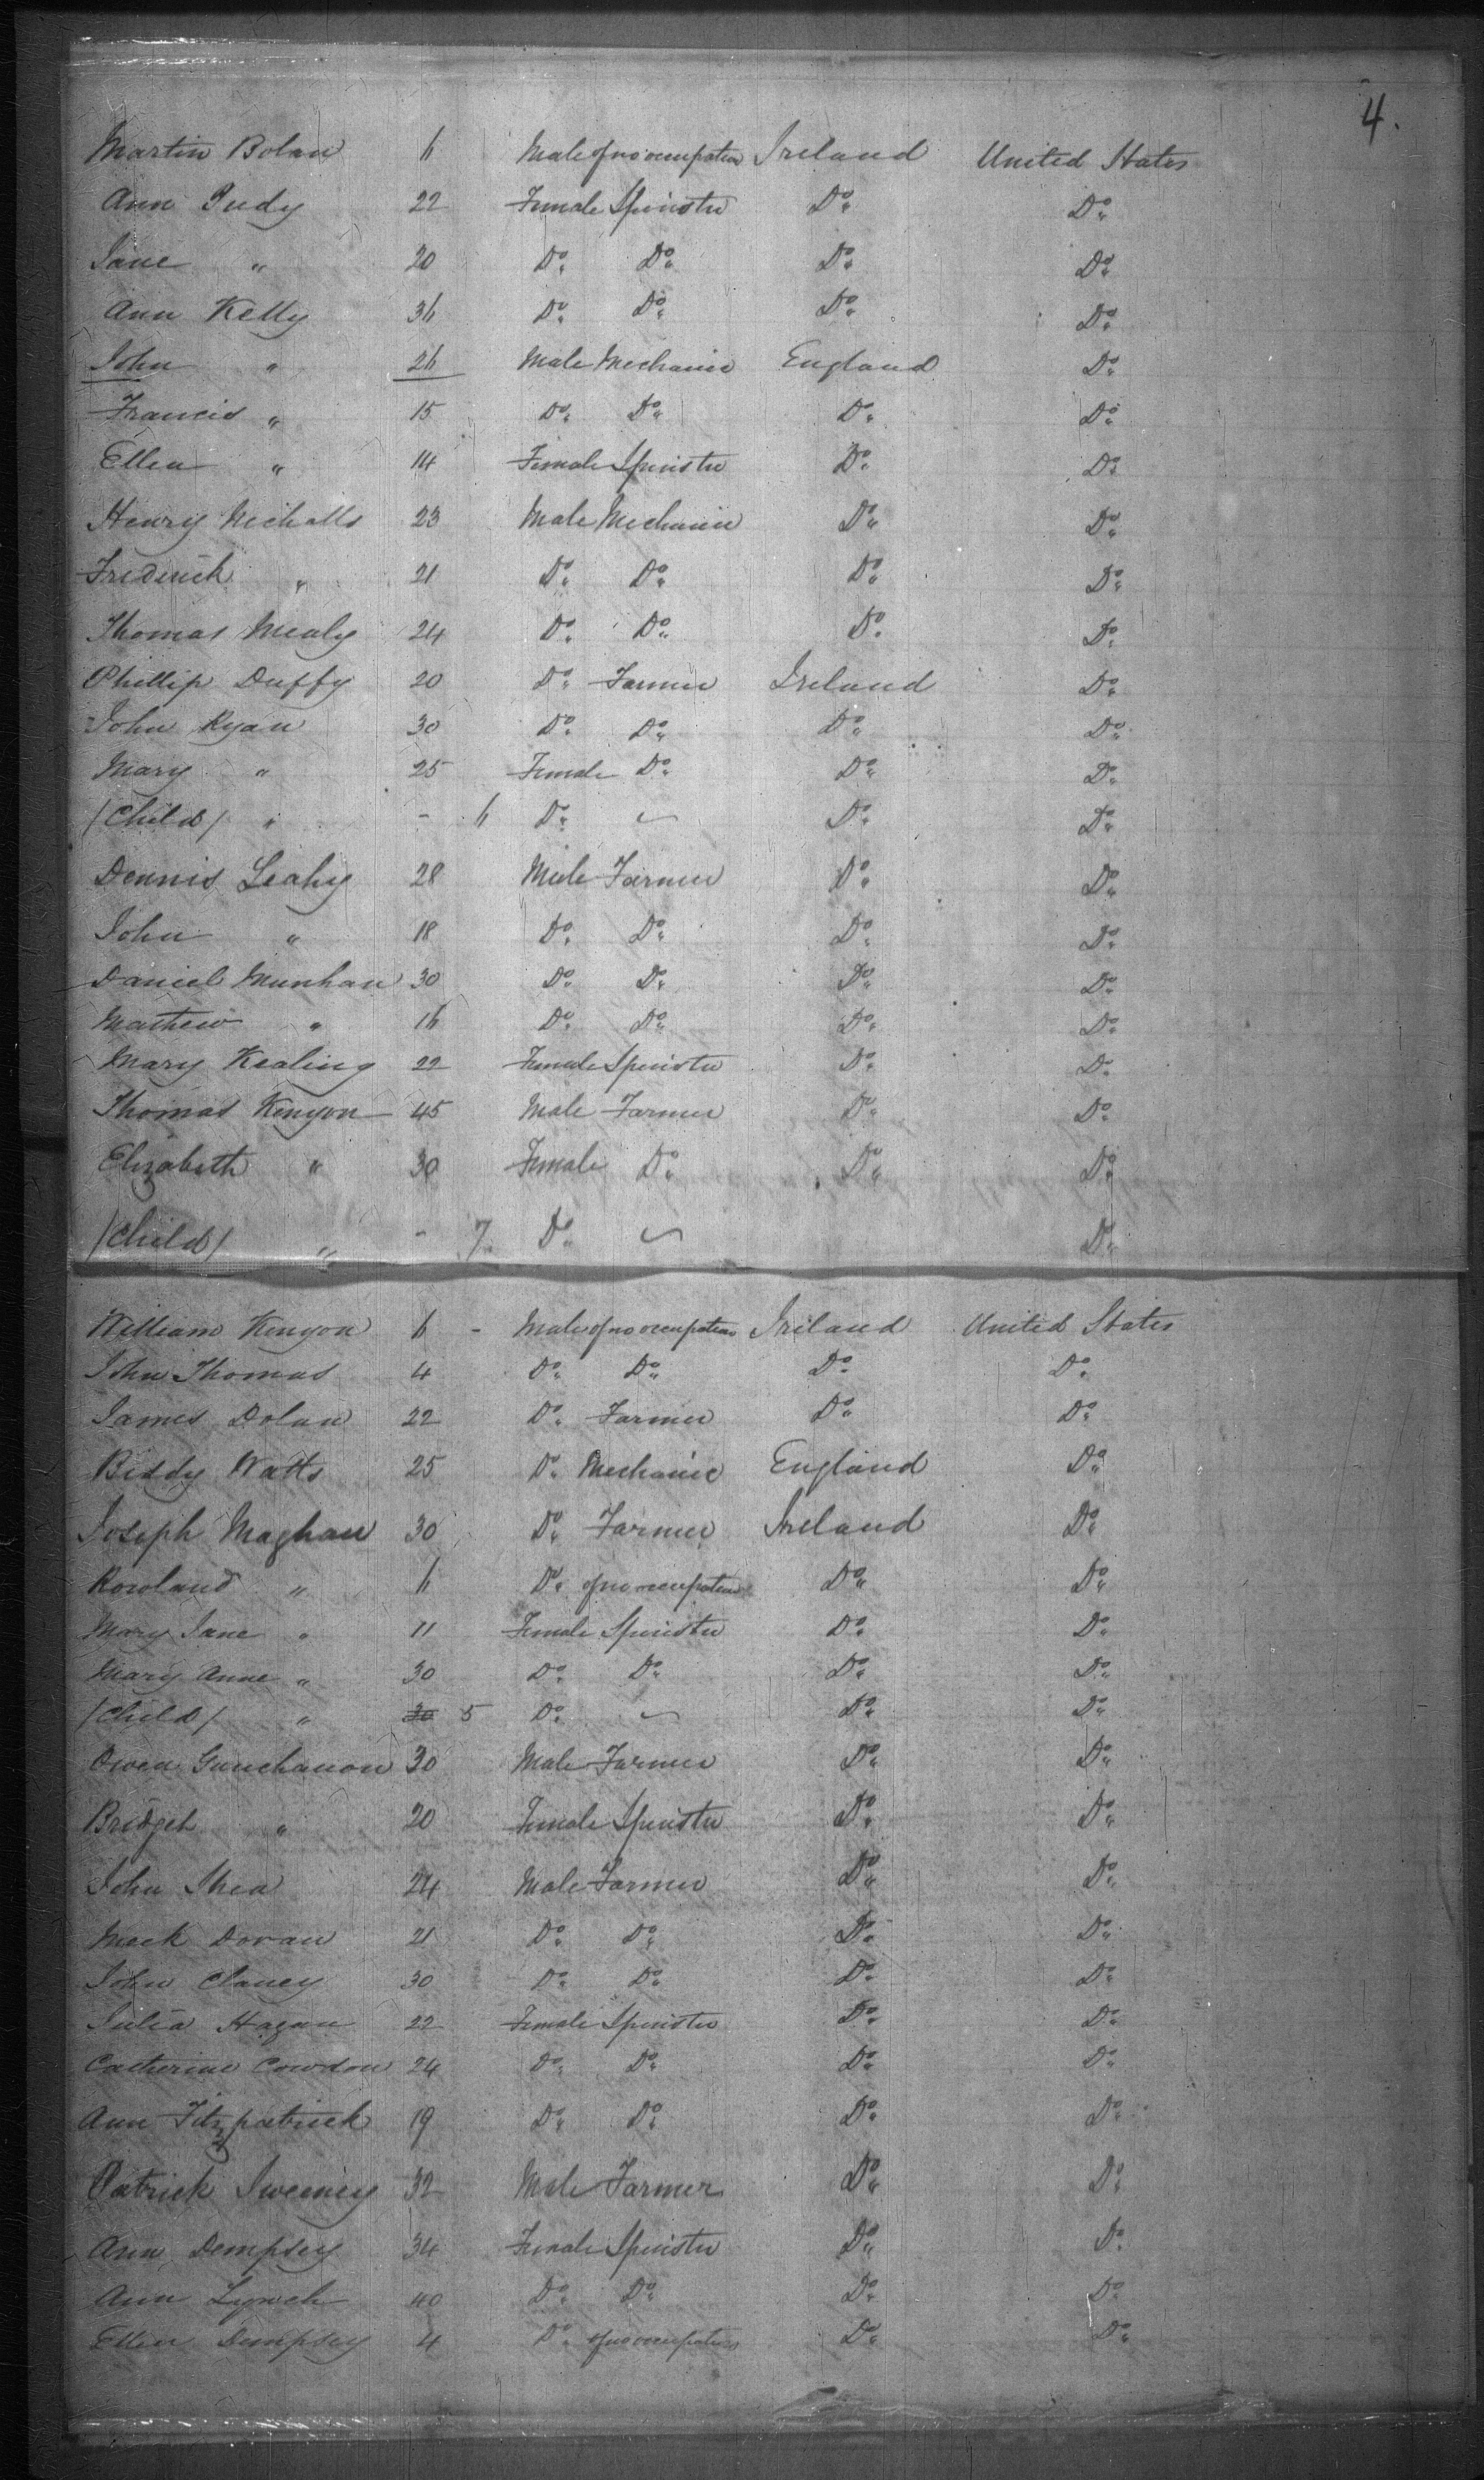 4.
Martin Bolan 6 Male of no occupation Ireland United States
Ann Judy 22 Female Spinster Do Do
Jane " 20 Do Do Do Do
Ann Kelly 36 Do Do Do Do
John " 26 Male Mechanic England Do
Francis " 15 Do Do Do Do
Ellen " 14 Female Spinster Do Do
Henry Nicholls 23 Male Mechanic Do Do
Frederick " 21 Do Do Do Do
Thomas Mealy 24 Do Do Do Do
Phillip Duffy 20 Do Farmer Ireland Do
John Ryan 30 Do Do Do Do
Mary " 25 Female Do Do Do
/Child/ " - 6 Do ~ Do Do
Dennis Leahy 28 Male Farmer Do Do
John " 18 Do Do Do Do
Daniel Munhan 30 Do Do Do Do
Mathew " 16 Do Do Do Do
Mary Kealing 22 Female Spinster Do Do
Thomas Kenyon 45 Male Farmer Do Do
Elizabeth " 30 Female Do Do Do
/Child/ " - 7 Do ~ Do
William Kenyon 6 - Male of no occupation Ireland United States
John Thomas 4 Do Do Do Do
James Dolan 22 Do Farmer Do Do
Biddy Watts 25 Do Mechanic England Do
Joseph Maghan 30 Do Farmer Ireland Do
Rowland " 6 Do of no occupation Do Do
Mary Jane " 11 Female Spinster Do Do
Mary Anne " 30 Do Do Do Do
/Child/ " 30 5 Do ~ Do Do
Owen 30 Male Farmer Do Do
Bridget " 20 Female Spinster Do Do
John Shea 24 Male Farmer Do Do
Mick Doran 21 Do Do Do Do
John Clancy 30 Do Do Do Do
Julia Hagan 22 Female Spinster Do Do
Catherine Cowdon 24 Do Do Do Do
Ann Fitzpatrick 19 Do Do Do Do
Patrick Sweeney 32 Male Farmer Do Do
Ann Dempsey 34 Female Spinster Do Do
Ann Lynch 40 Do Do Do Do
Ellen Dempsey 4 Do of no occupation Do Do